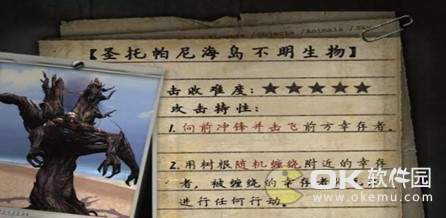 【圣托帕尼海岛不明生物】
击败难度：★★★★★
攻击特性：
1.向前冲锋并击飞前方幸存者。
2.用树根随机缠绕附近的幸存
者，被缠绕的幸存者
进行任何行动。
OK软件园
www.okemu.com